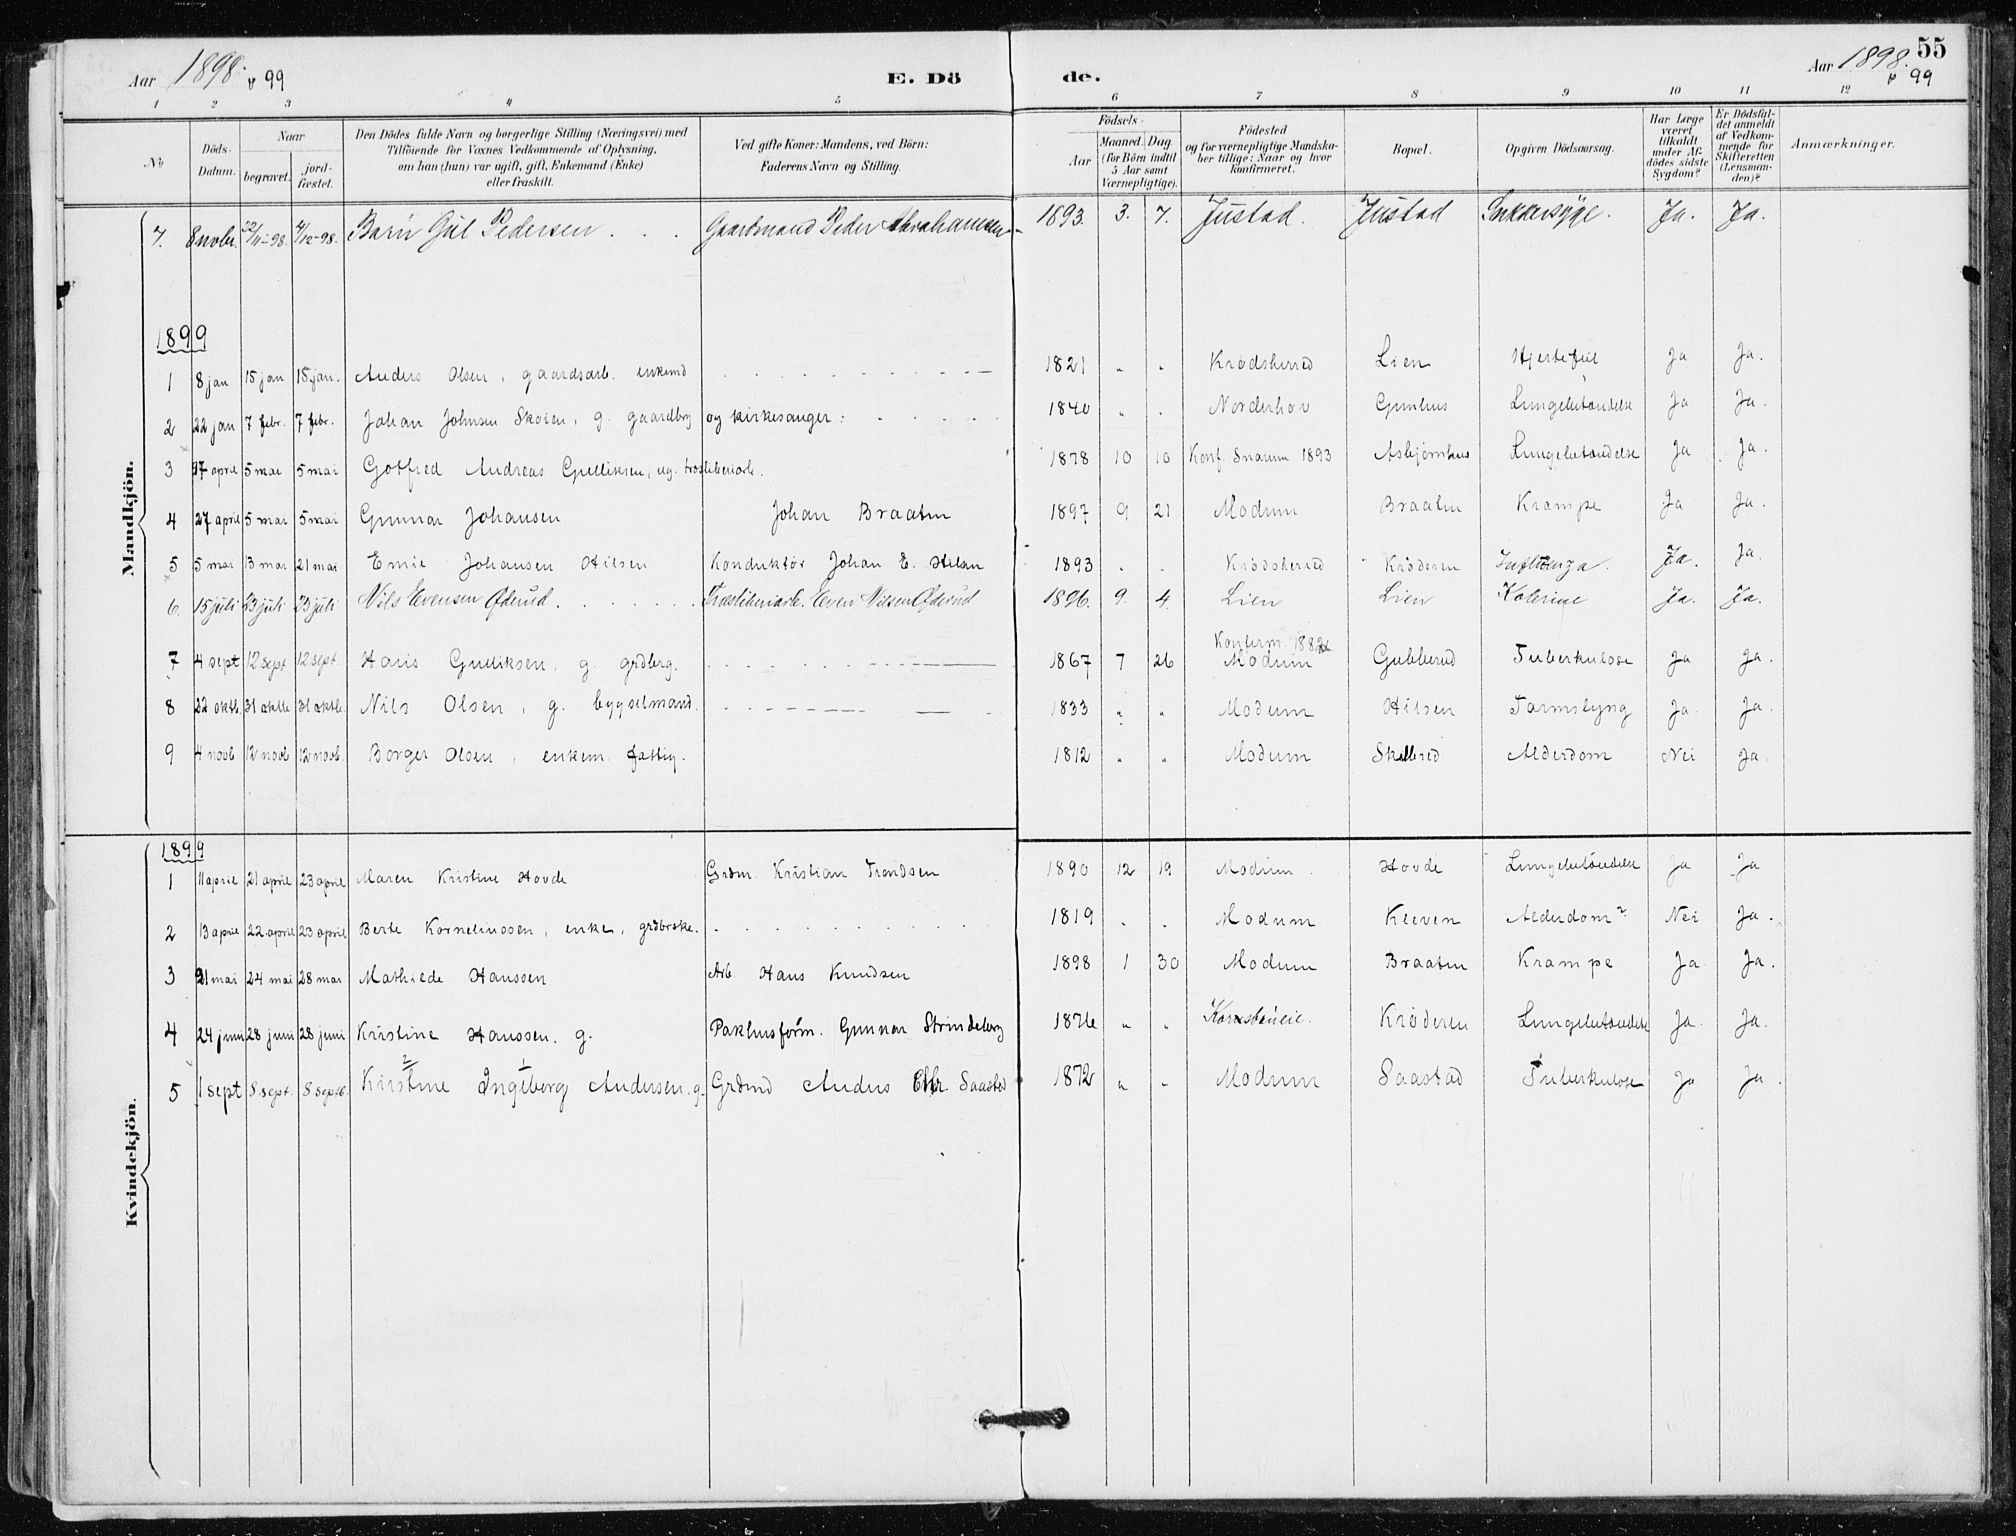 Aar 1898. & 99
E. Döde.
Aar 1898. & 99
55
1 2 3 4 5 6 7 8 9 10 11 12
No
Döds-Datum.
Naar
begravet.
jord-fæstet.
Den Dödes fulde Navn og borgerlige Stilling (Næringsvei) med
Tilföiende for Voxnes Vedkommende af Oplysning,
om han (hun) var ugift, gift, Enkemand (Enke)
eller fraskilt.
Ved gifte Koner: Mandens, ved Börn:
Faderens Navn og Stilling.
Födsels-
Aar
Maaned. Dag.
(for Börn indtil
5 Aar samt
Værnepligtige).
Födested
og for værnepligtige Mandska-
ber tillige: Naar og hvor
konfirmeret.
Bopæl.
Opgiven Dödsaarsag.
Har Læge
været
tilkaldt
under Af-
dödes sidste
Sygdom?
Er Dödsfal-
det anmeldt
af Vedkom-
mende for
Skifteretten
(Lensman-
den)?
Anmærkninger.
Mandkjön.
7. 8 novbr. 22/11-98. 4/12-98. Barn Gul Pedersen . . . Gaardmand Peder Abrahamsen 1893. 3. 7. Justad. Justad Sukkersyge. Ja. Ja.
1899
1 8 jan 15 jan 15 jan. Anders Olsen, gaardsarb. enkemd 1821 " " Krødsherred Lien Hjertefeil Ja Ja.
2 22 jan 7 febr. 7 febr. Johan Johnsen Skoien, g. gaardbrg og kirkesanger: 1840 " " Norderhov Gunhus Lungebetændelse Ja Ja.
3 27 april 5 mai 5 mai Gotfred Andreas Gulliksen, ug. træsliberiarb. 1878 10 10 Konf. Snarum 1893 Asbjørnhus Lungebetændelse Ja Ja.
4 27 april 5 mai 5 mai Gunnar Johansen Johan Braaten 1897 9 21 Modum Braaten Krampe Ja Ja.
5 5 mai 13 mai 21 mai Emil Johansen Hilsen Konduktør Johan E. Hilsen 1893 " " Krødsherred Krøderen Influenza. Ja. Ja.
6. 15 juli 23 juli 23 juli Nils Evensen Øderud . . . Træsliberiarb. Even Nilsen Øderud 1896. 9. 4. Lien Lien Kolerine Ja. Ja.
Konfirm. 1882
7 4 sept 12 sept. 12 sept. Hans Gulliksen, g. grdbrg. 1867 7 26 Modum Gubberud Tuberkulose Ja Ja.
8 22 oktb. 31 oktb 31 oktb. Nils Olsen, g. bygselmand. 1833 " " Modum Hilsen Tarmslyng Ja Ja.
9 4 novb 12 novb 12 novb. Borger Olsen, enkem. fattig. 1812 " " Modum Skallerud Alderdom Nei Ja
Kvindekjön.
1899
1 11 april 21 april 23 april Maren Kristine Hovde Grdm. Kristian Trondsen 1890 12 19 Modum. Hovde Lungebetændelse Ja Ja
2 13 april 22 april 23 april Berte Korneliussen, enke, grdbrske. 1819 " " Modum Kleven Alderdom? Nei Ja.
3 21 mai 24 mai 28 mai Mathilde Hanssen Arb Hans Knudsen 1898 1 30 Modum Braaten Krampe Ja Ja.
4 24 juni 28 juni 28 juni Kristine Hanssen. g. Pakhusform. Gunnar Strindeberg 1876 " " Krøderen Lungebetændelse Ja. Ja.
2 1
5 1 sept 8 sept. 8 septb. Kristine Ingeborg Andersen. g. Grdmd Anders Chr. Saastad 1872 " " Modum Saastad Tuberkulose Ja Ja.